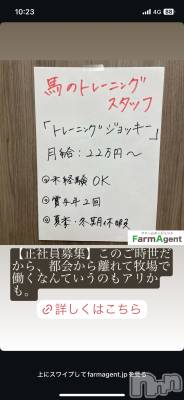 10:23
4G
馬のトレーニング
スタッフ
「トレーニングジョッキー」
月給：22万円〜
未経験OK
賞与年2回
夏季・冬期休暇
FarmAgent
【正社員募集】このご時世だ
から、都会から離れて牧場で
働くなんていうのもアリか
も。
詳しくはこちら
上にスワイプしてfarmagent.jpを見る